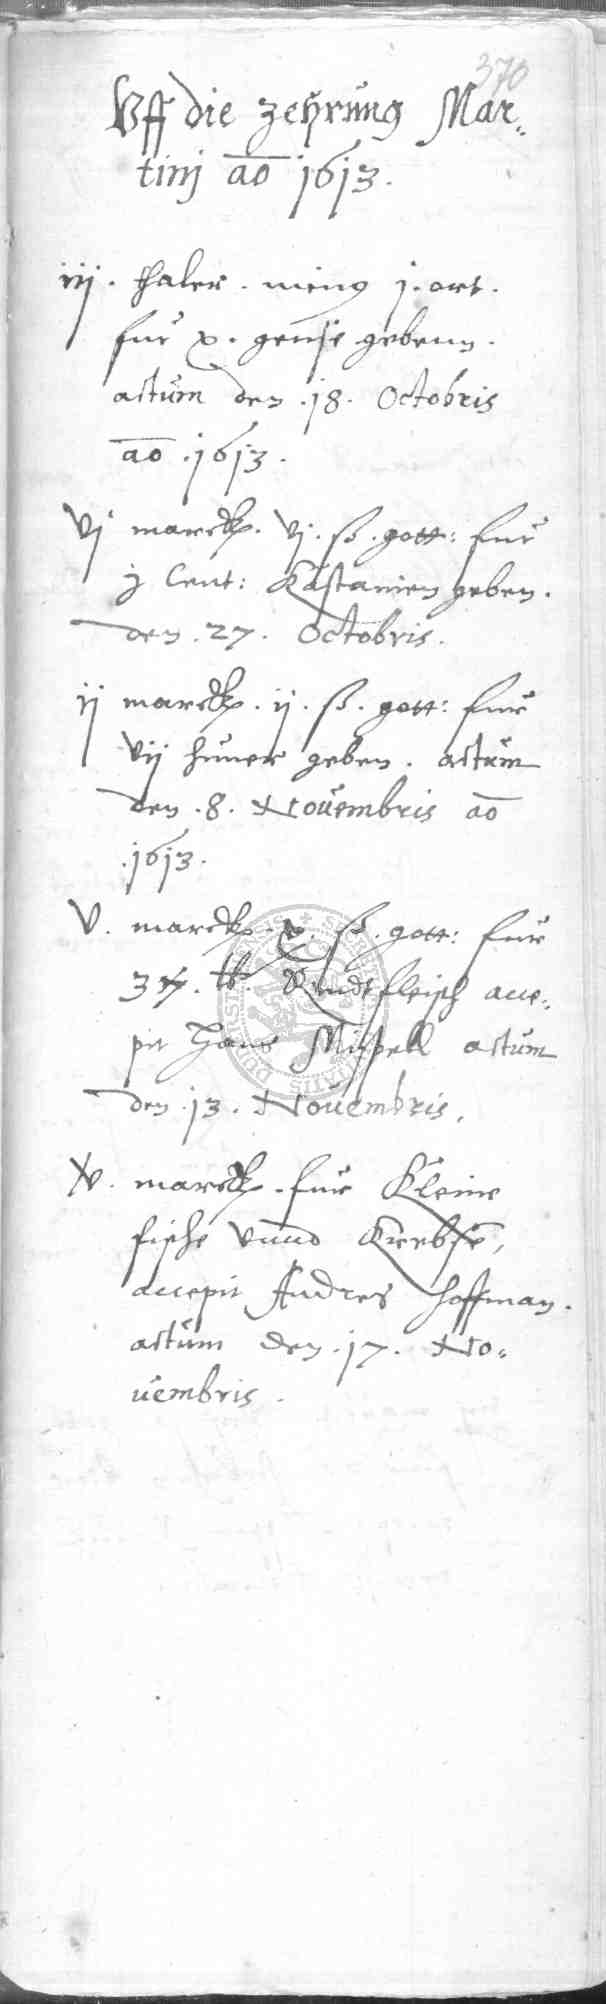 370
Vff die zehrung Mar„
tinj ao 1613.
iij. thaler. minus j. ort.
fur x. gense gebenn.
actum den .18. Octobris
ao .1613.
vj marck. vj. ß. gott: fur
j Cent: Kastanien geben.
den .27. Octobris.
ij marck. ij. ß. gott: fur
vij huner geben. actum
den .8. Nouembris ao
.1613.
V. marck. x. ß. gott: fur
lb. Rindtfleisch acce„
pit Hans Mispell actum
den .13. Nouembris.
marck. fur Kleine
fische vnnd Krebse,
accepit Andres Hoffman.
actum den .17. No„
uembris.